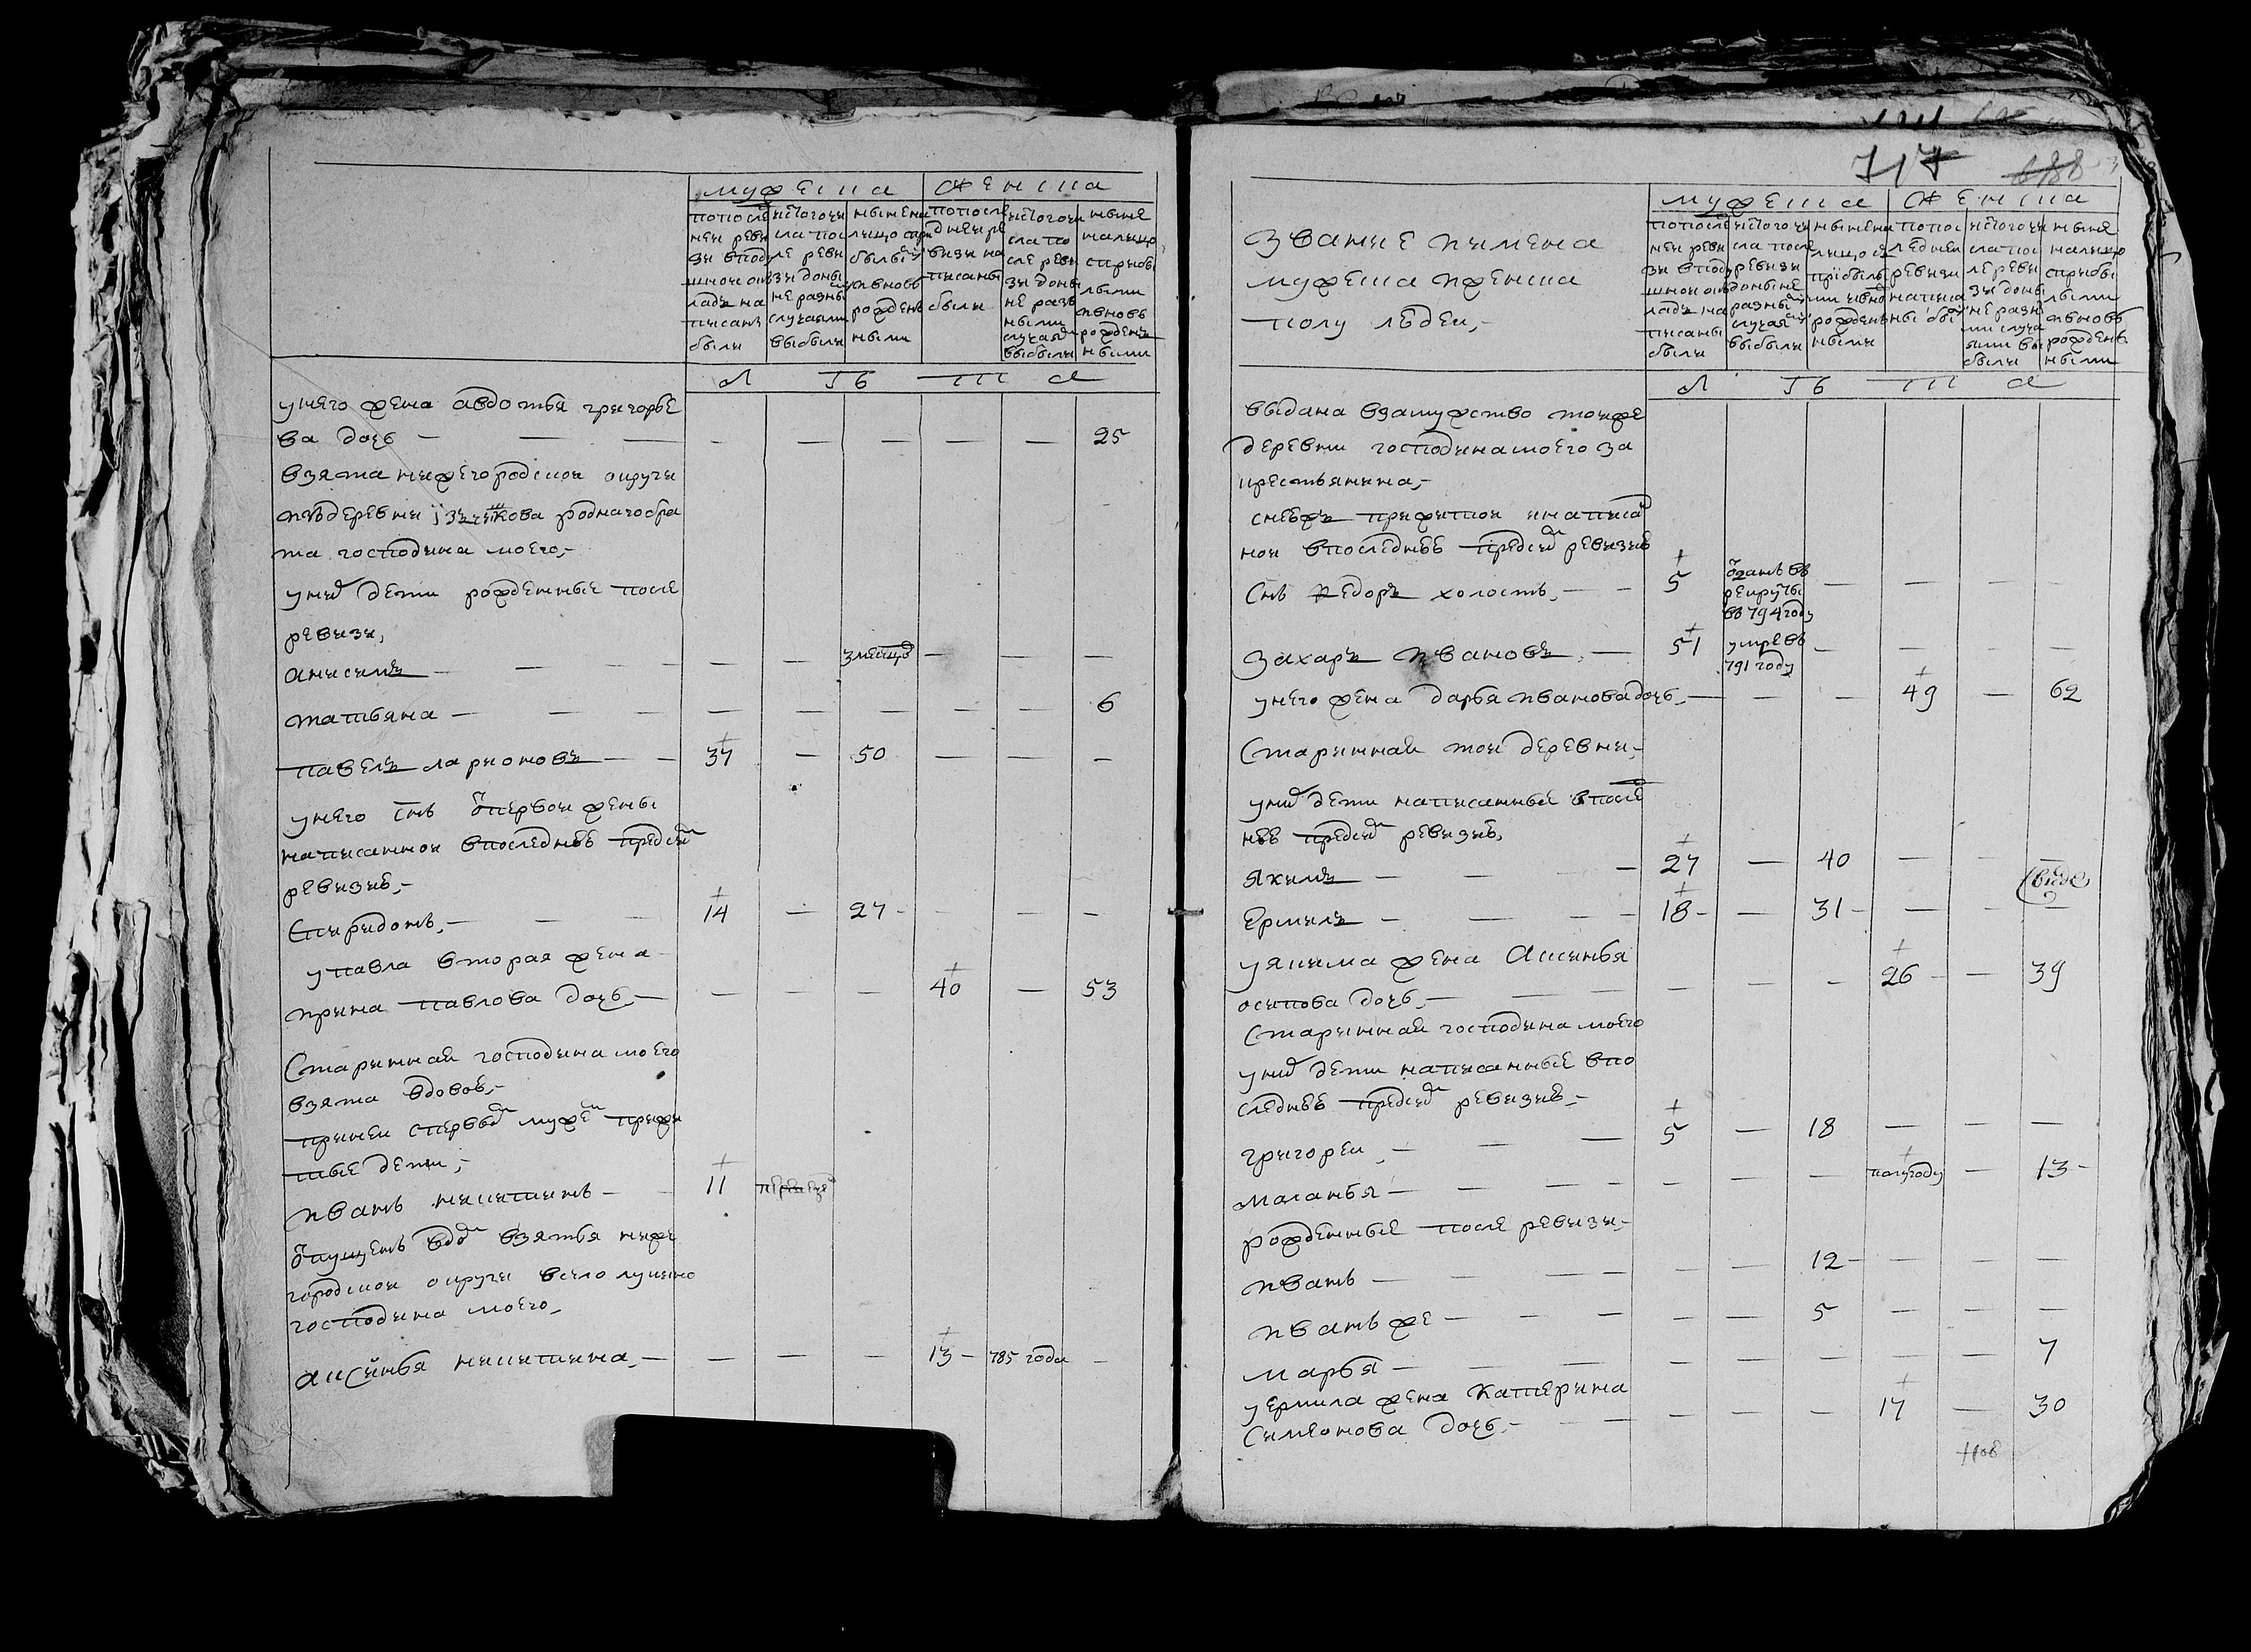 мужеска женска
попосле
ней реви
зи впод
шном ок
ладъ на
писанъ
были
ис того чи
сла пос
ле реви
зи доны
не разны
случаями
выбыли
ныне на
лицо спри
былыми
ивновь
рожден
ными
попосле
дней ре
визи на
писаны
были
ис того чи
сла по
сле реви
зи доны
не разъ
ными
случая
выбыли
ныне
налицо
сприбы
лыми
ивновь
рожденъ
ными
л ѣ т а
унего жена авдотья григорье
ва дочь — 25
взята нижегородской округи
издеревни роднаго бра
та господина моего,-
уних дети рожденные после
ревизи,
анисимъ — 3 месяцов
татьяна — 6
павелъ ларионовъ — 37 — 50
унего сынъ отпервой жены
написанной впоследнюю предсим
ревизию,-
спиридонъ,- 14 — 27
упавла вторая жена
ирина павлова дочь,- 40 — 53
старинная господина моего
взята вдовою,-
приней спервым мужем прижи
тые дети,-
иванъ никитинъ — 11
отпущенъ вдом взятья ниже
городской округи всело лукино
господина моего,-
аксинья никитина,- 13 — 785 года
717
688
звание иимена
мужеска иженска
полу людей,-
мужеска женска
попосле
ней реви
зи впод
шном ок
ладъ на
писаны
были
ис того чи
сла после
ревизи
доныне
разным
случая
выбыли
ныне на
лицо с
прибылы
ми ивно
рожден
ными
попос
ледней
ревизи
написа
ны бы
ис того чи
сла пос
ле реви
зи доны
не разн
ми случа
ями вы
были
ныне
налицо
сприбы
лыми
ивновь
рожденъ
ными
л ѣ т а
выдана взамужство тоиже
деревни господина моего за
крестьянина,-
снеюжъ прижитои инаписа
нои впоследнюю предсим ревизию
сынъ федоръ холостъ,- 5 отданъ въ
рекруты
въ 794 году
захаръ ивановъ,- 51 умре въ
791 году
унего жена дарья иванова дочь,- 49 — 62
старинная тои деревни,-
уних дети написанные впосле
нюю предсим ревизию,
якимъ — 27 — 40
ермилъ — 18 — 31
уякима жена аксинья
осипова дочь,- 26 — 39
старинная господина моего
уних дети написанные впо
следнюю предсим ревизию,-
григореи,- 5 — 18
маланья — полугоду — 13
рожденные после ревизи,-
иванъ — 12
иванъ же — 5
марья — 7
уермила жена катерина
симионова дочь,- 17 — 30